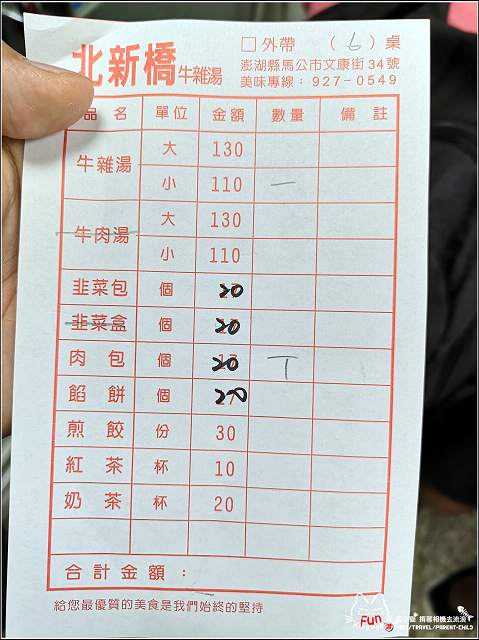 北新橋牛雜湯
□外帶 （6）桌
澎湖縣馬公市文康街34號
美味專線：927-0549
品名 單位 金額 數量 備註
牛雜湯 大 130
小 110 一
牛肉湯 大 130
小 110
韭菜包 個 20
韭菜盒 個 20
肉包 個 20 丅
餡餅 個 20
煎餃 份 30
紅茶 杯 10
奶茶 杯 20
合計金額：
給您最優質的美食是我們始終的堅持
FUN 揹著相機去流浪
FOOD/TRAVEL/PARENT-CHILD